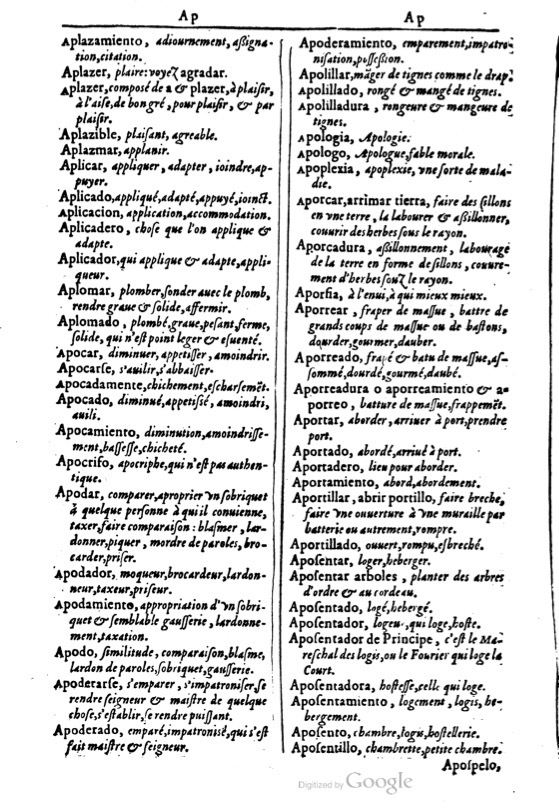 Ap
Ap
Aplazamiento, adiournement, aßigna-
tion, citation.
Aplazer, plaire: voyez agradar.
Aplazer, composé de a & plazer, à plaisir,
à l'aise, de bon gré, pour plaisir, & par
plaisir.
Aplazible, plaisant, agreable.
Aplazmar, applanir.
Aplicar, appliquer, adapter, ioindre, ap-
puyer.
Aplicado, appliqué, adapté, appuyé, ioinct.
Aplicacion, application, accommodation.
Aplicadero, chose que l'on applique &
adapte.
Aplicador, qui applique & adapte, appli-
queur.
Aplomar, plomber, sonder auec le plomb,
rendre graue & solide, affermir.
Aplomado, plombé, graue, pesant, ferme,
solide, qui n'est point leger & esuenté.
Apocar, diminuer, appetisser, amoindrir.
Apocarse, s'auilir, s'abbaisser.
Apocadamente, chichement, escharsemẽt.
Apocado, diminué, appetißé, amoindri,
auili.
Apocamiento, diminution, amoindrisse-
ment, bassesse, chicheté.
Apocrifo, apocriphe, qui n'est pas authen-
tique.
Apodar, comparer, aproprier vn sobriquet
à quelque personne à qui il conuienne,
taxer, faire comparaison: blasmer, lar-
donner, piquer, mordre de paroles, bro-
carder, priser.
Apodador, moqueur, brocardeur, lardon-
neur, taxeur, priseur.
Apodamiento, appropriation d'vn sobri-
quet & semblable gausserie, lardonne-
ment, taxation.
Apodo, similitude, comparaison, blasme,
lardon de paroles, sobriquet, gausserie.
Apoderarse, s'emparer, s'impatroniser, se
rendre seigneur & maistre de quelque
chose, s'establir, se rendre puissant.
Apoderado, emparé, impatronisé, qui s'est
fait maistre & seigneur.
Apoderamiento, emparement, impatro-
nisation, possession.
Apolillar, mãger de tignes comme le drap.
Apolillado, rongé & mangé de tignes.
Apolilladura, rongeure & mangeure de
tignes.
Apologia, Apologie.
Apologo, Apologue, fable morale.
Apoplexia, apoplexie, vne sorte de mala-
die.
Aporcar, arrimar tierra, faire des sillons
en vne terre, la labourer & aßillonner,
couurir des herbes sous le rayon.
Aporcadura, aßillonnement, labourage
de la terre en forme de sillons, couure-
ment d'herbes souz le rayon.
Aporfia, à l'enui, à qui mieux mieux.
Aporrear, fraper de massue, battre de
grands coups de massue ou de bastons,
dourder, gourmer, dauber.
Aporreado, frapé & batu de massue, as-
sommé, dourdé, gourmé, daubé.
Aporreadura o aporreamiento & a-
porreo, batture de massue, frappemẽt.
Aportar, aborder, arriuer à port, prendre
port.
Aportado, abordé, arriué à port.
Aportadero, lieu pour aborder.
Aportamiento, abord, abordement.
Aportillar, abrir portillo, faire breche,
faire vne ouuerture à vne muraille par
batterie ou autrement, rompre.
Aportillado, ouuert, rompu, esbreché.
Aposentar, loger, heberger.
Aposentar arboles, planter des arbres
d'ordre & au cordeau.
Aposentado, logé, hebergé.
Aposentador, logeur, qui loge, hoste.
Aposentador de Principe, c'est le Ma-
reschal des logis, ou le Fourier qui loge la
Court.
Aposentadora, hostesse, celle qui loge.
Aposentamiento, logement, logis, he-
bergement.
Aposento, chambre, logis, hostellerie.
Aposentillo, chambrette, petite chambre.
Apospelo,
Digitized by Google